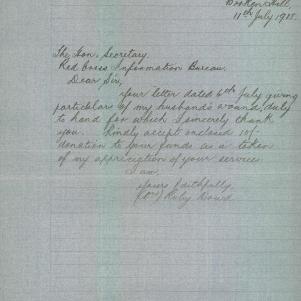 Broken Hill,
11th July 1918.
The Hon. Secretary.
Red Cross Information Bureau.
Dear Sir,
Your letter dated 6th July giving
particulars of my husband's wounds, duly
to hand for which I sincerely thank
you. Kindly accept enclosed 10/-
donation to your funds as a token
of my appreciation of your service.
I am,
Yours faithfully,
Ruby